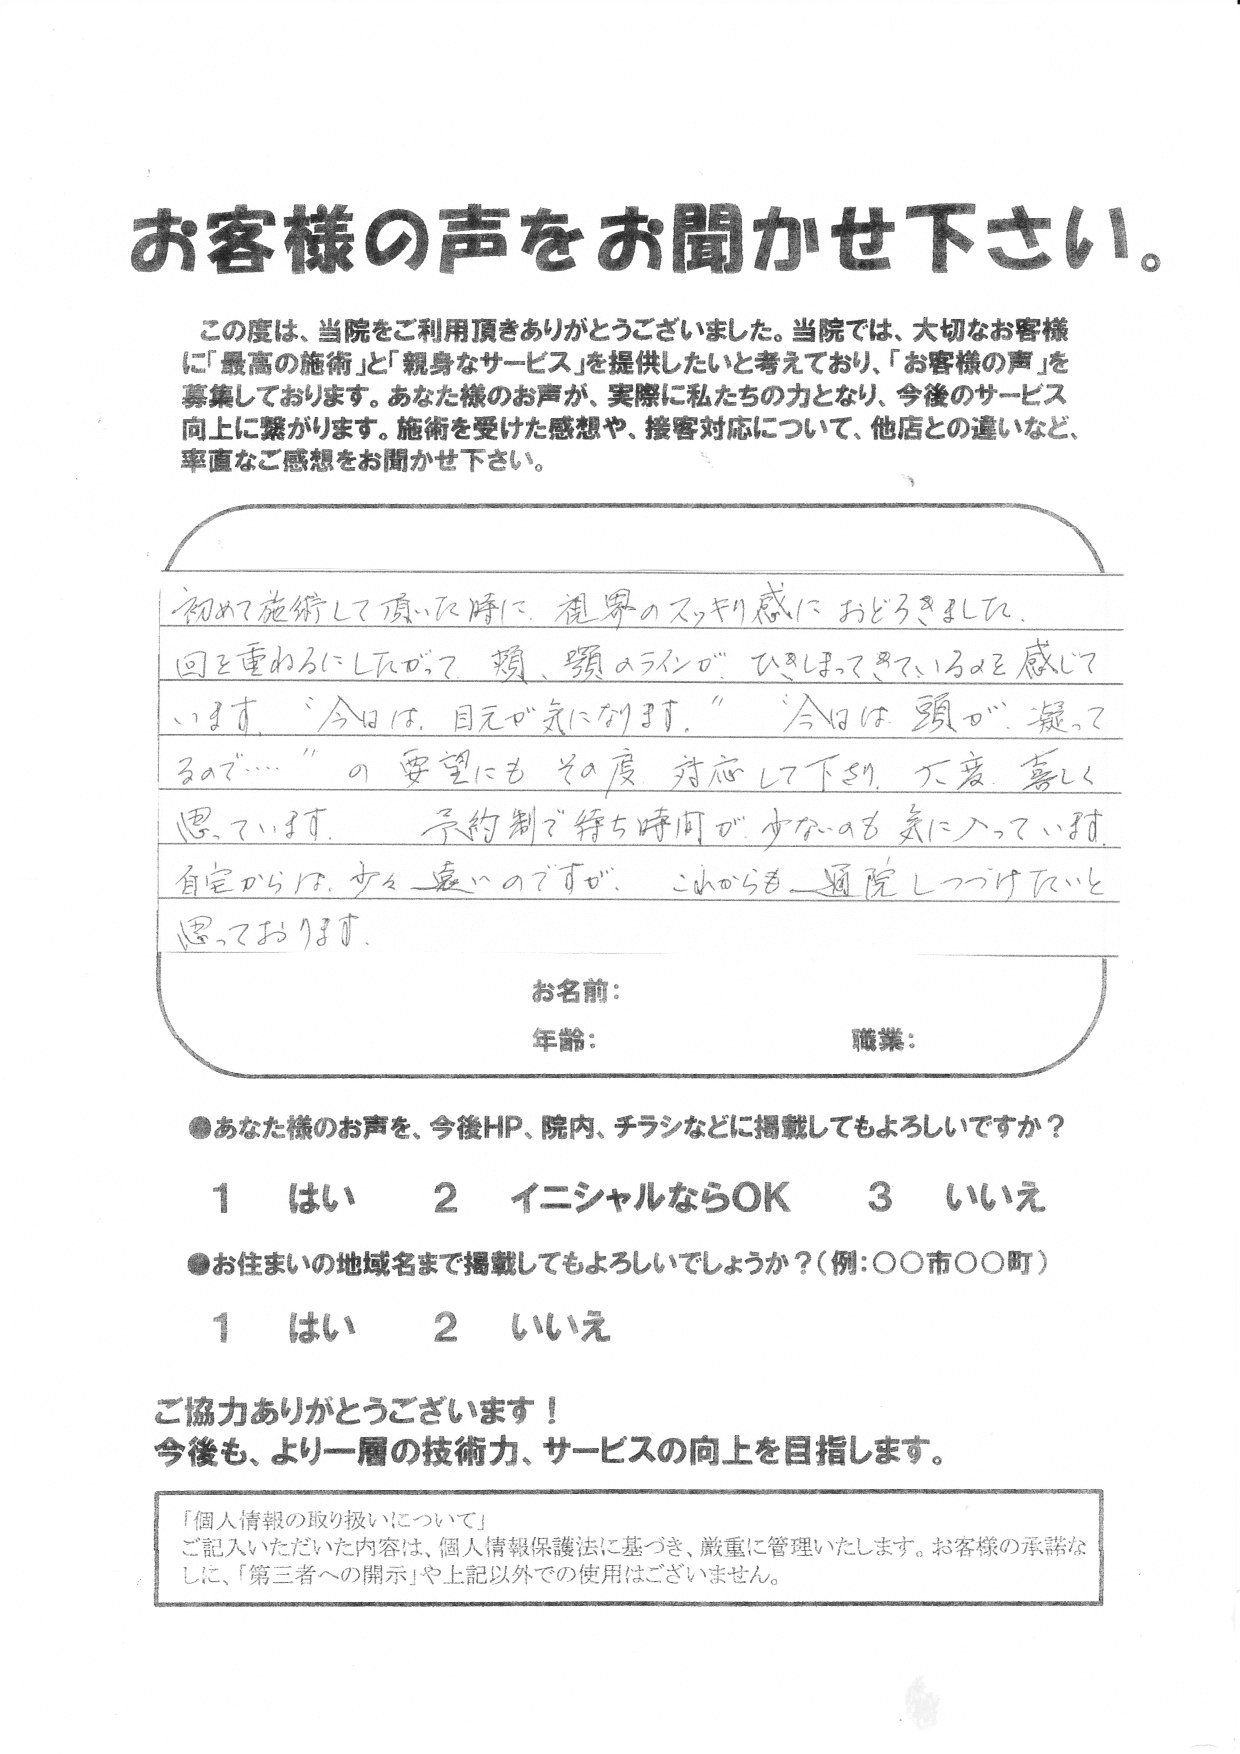 お客様の声をお聞かせ下さい。
この度は、当院をご利用頂きありがとうございました。当院では、大切なお客様
に「最高の施術」と「親身なサービス」を提供したいと考えており、「お客様の声」を
募集しております。あなた様のお声が、実際に私たちの力となり、今後のサービス
向上に繋がります。施術を受けた感想や、接客対応について、他店との違いなど、
率直なご感想をお聞かせ下さい。
初めて施術して頂いた時に、視界のスッキリ感におどろきました。
回を重ねるにしたがって、頬、顎のラインが、ひきしまってきているのを感じて
います。"今日は、目元が気になります。" "今日は、頭が、凝って
るので‥‥"の要望にもその度、対応して下さり、大変、喜しく
思っています。 予約制で待ち時間が、少ないのも気に入っています。
自宅からは、少々遠いのですが、これからも通院しつづけたいと
思っております。
お名前：
年齢： 職業：
●あなた様のお声を、今後HP、院内、チラシなどに掲載してもよろしいですか？
1 はい 2 イニシャルならOK 3 いいえ
●お住まいの地域名まで掲載してもよろしいでしょうか？（例：〇〇市〇〇町）
1 はい 2 いいえ
ご協力ありがとうございます！
今後も、より一層の技術力、サービスの向上を目指します。
「個人情報の取り扱いについて」
ご記入いただいた内容は、個人情報保護法に基づき、厳重に管理いたします。お客様の承諾な
しに、「第三者への開示」や上記以外での使用はございません。